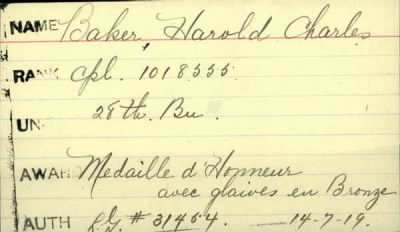 NAME Baker, Harold Charles
RANK Cpl. 1018555
UN 28th. Bn.
AWAR Medaille d'Honneur
avec glaives en Bronze
AUTH L.G. # 31454. 14-7-19.